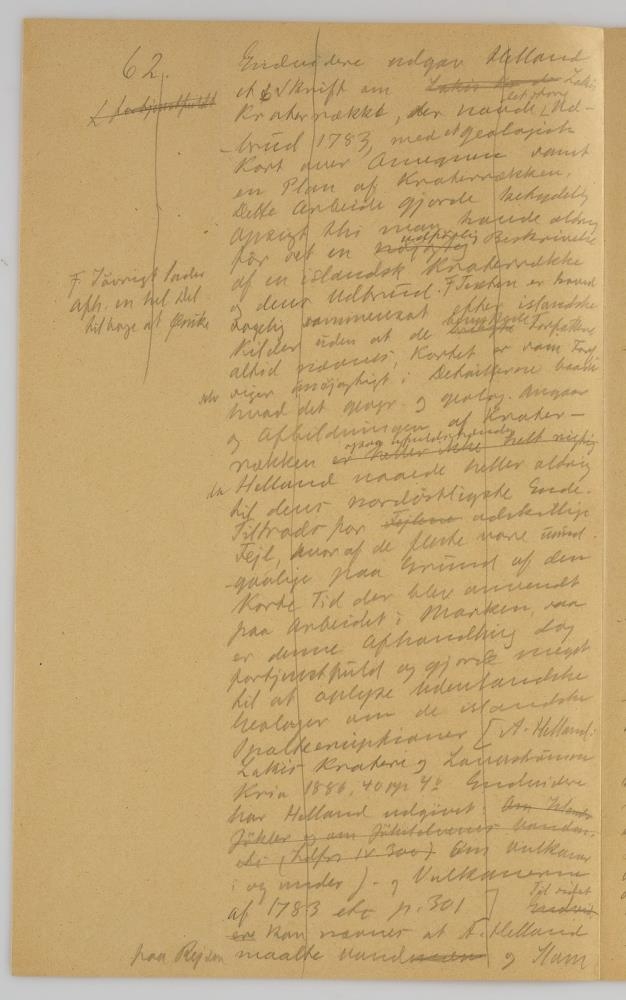 62.
Endvidere udgav Helland
et Skrift om Lakis
Kraterrække, der havde det store Ud-
brud 1783, med et geologisk
Kort over Annequen samt
en Plan af Kraterrækken.
Dette Arbeide gjorde betydelig
Opsigt thi man havde aldrig
før set en udførlig Beskrivelse
af en islandsk Kraterrække
og dens Udbrud. F Texten er hoved
sagelig efter islandske
Kilder uden at de benyttede Forfattere
altid nævnes, Kortet er som
unøjagtigt i Detaillerne baade
hvad det geogr. og geolog. angaar
og Afbildningen af Krater-
rækken er heller ikke helt rigtig
da Helland naaede heller aldrig
til dens nordøstligste Ende.
Tiltrods for Fejlene adskillige
Fejl, hvoraf de fleste vare uund-
gaalige paa Grund af den
korte Tid der blev anvendt
paa Arbeidet i Marken, saa
er denne Afhandling dog
fortjenstfuld og gjorde meget
til at oplyse udenlandske
Geologer om de islandske
Spalteeruptioner [A. Helland:
Lakis Kratere og Lavastrømme
Kria 1886, 40 pp 4o Endvidere
har Helland udgivet: Om Islands
Jökler og om Jökelelvenes
(Ldfrs IV 300) Om Vulkaner
i og under J. og Vulkanerne
af 1783 etc p. 301]
kan nævnes at A. Helland
paa Rejsen maalte og
F Iøvrigt lader
Afh. en hel Del
tilbage at ønske